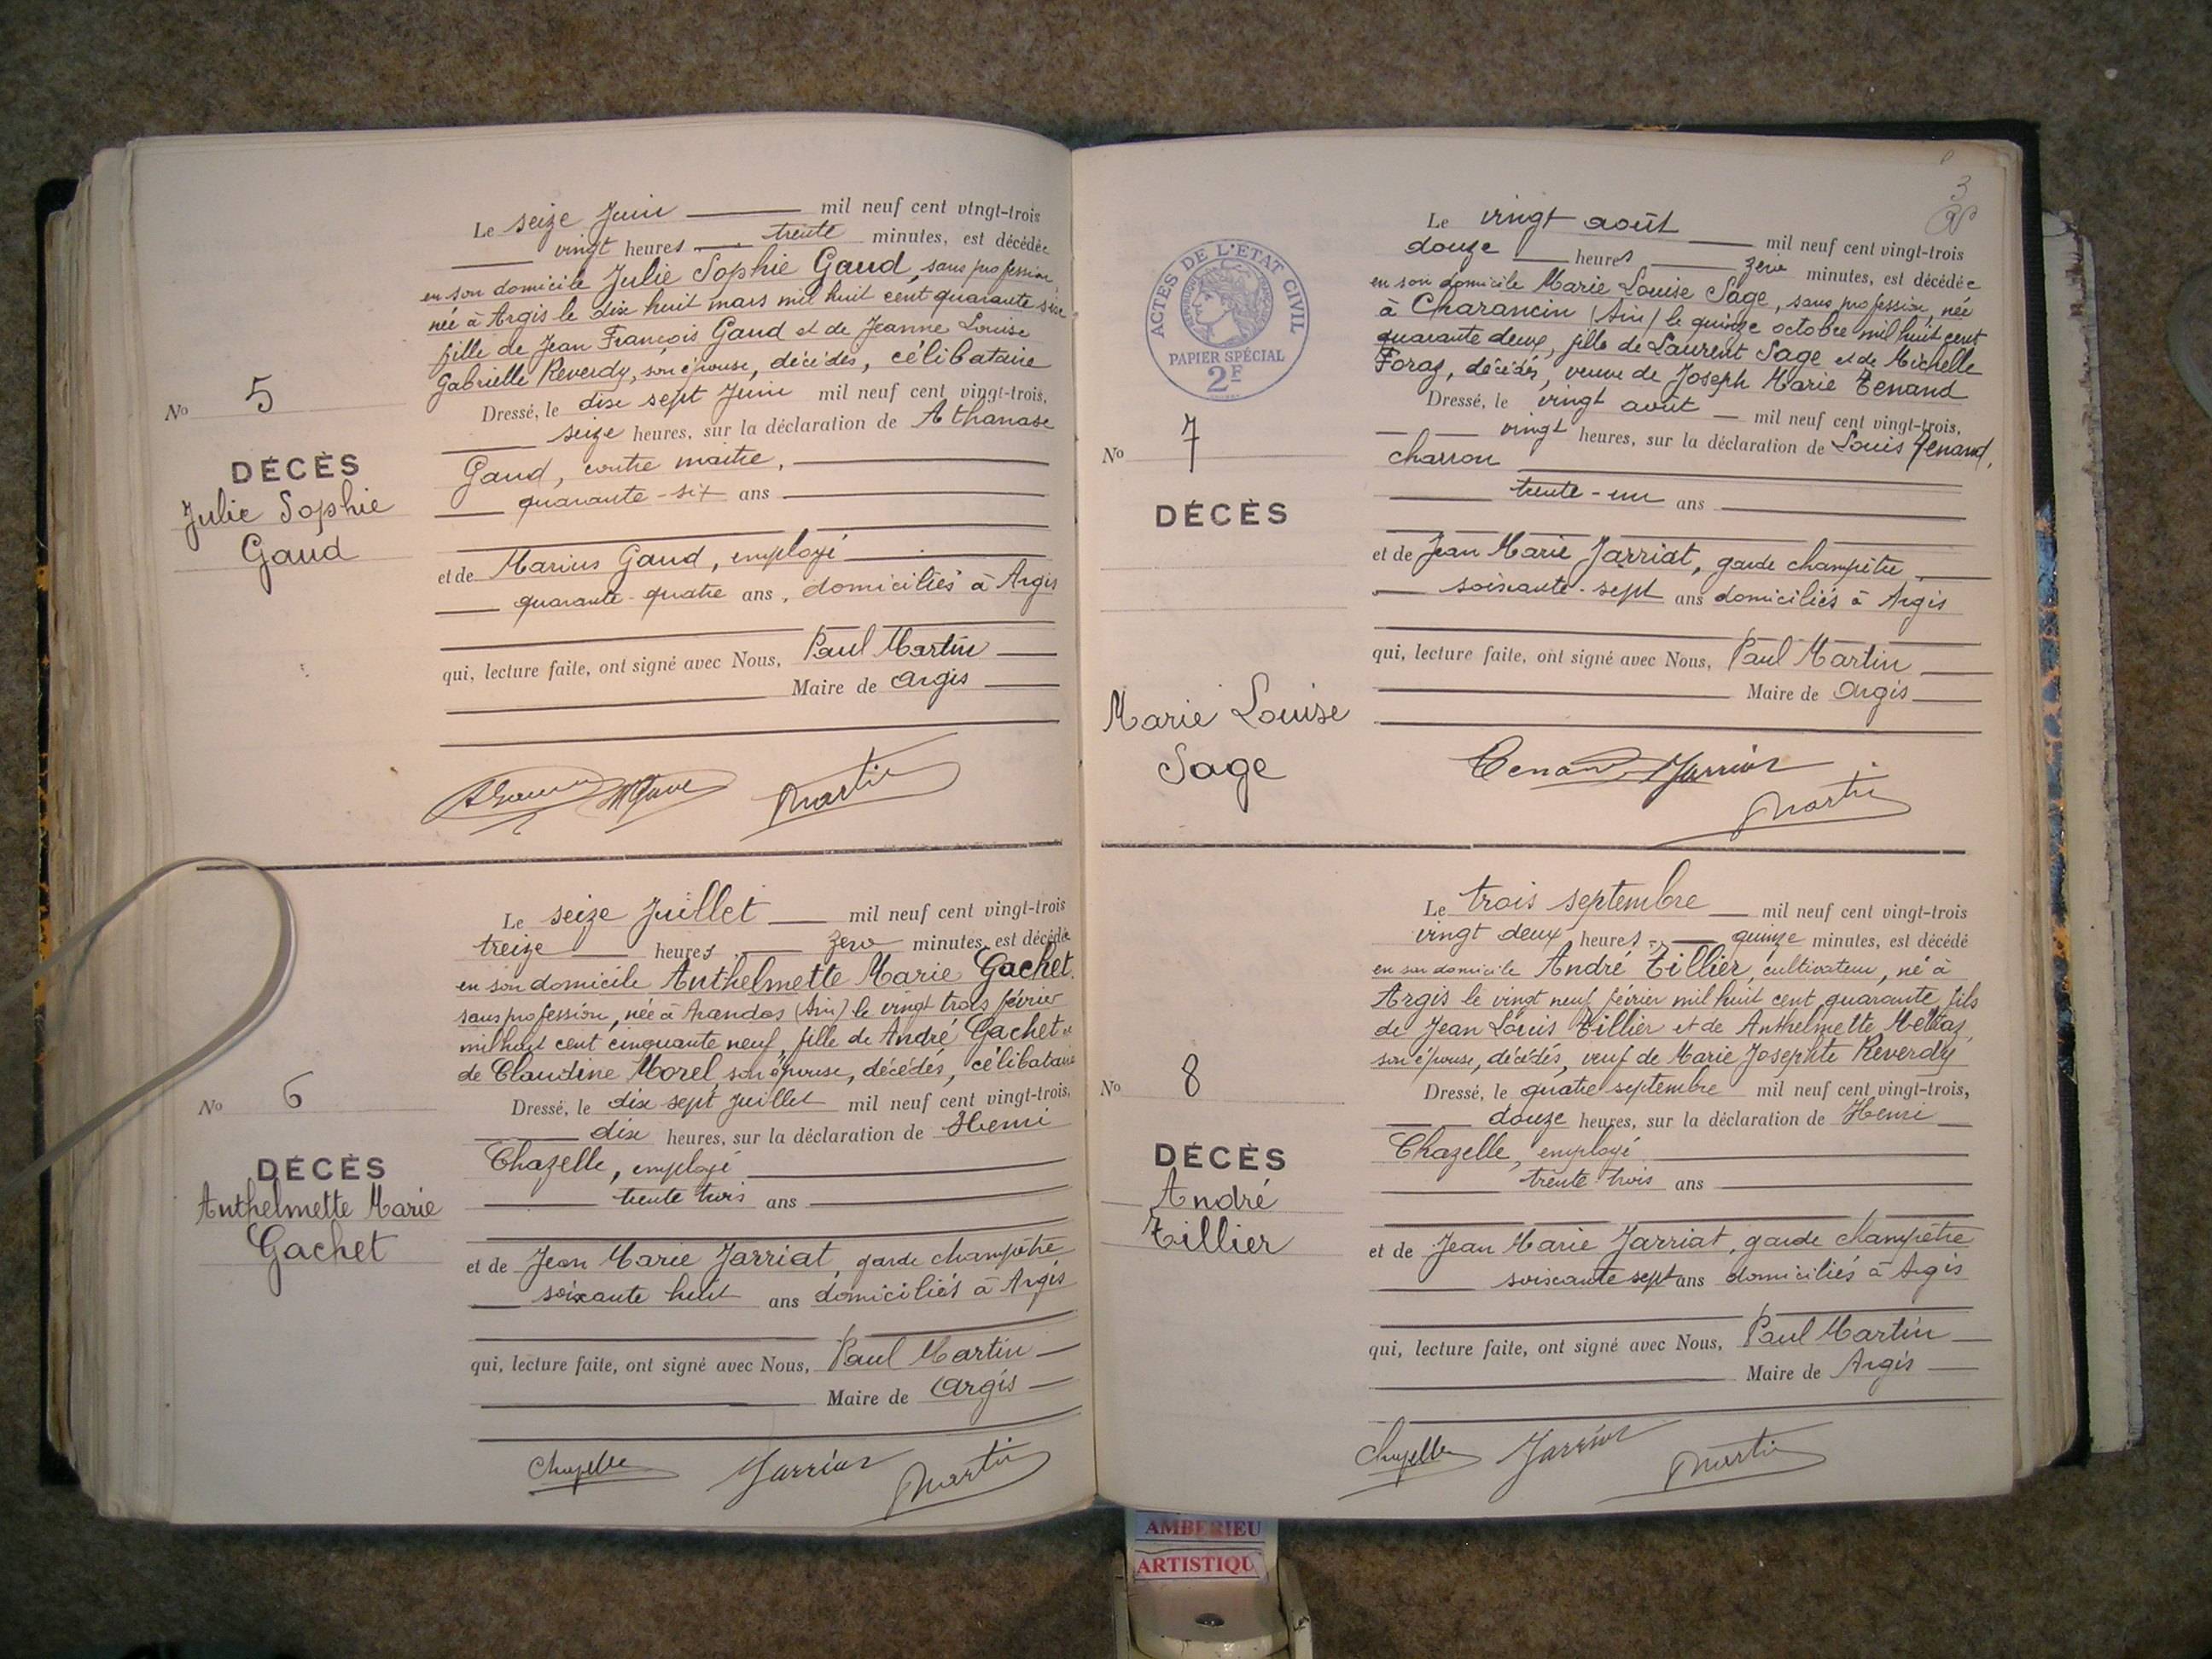 Le seize Juin mil neuf cent vingt-trois
vingt heures trente minutes, est décédée
en son domicile Julie Sophie Gaud, sans profession,
née à Argis le dix huit mars mil huit cent quarante six
fille de Jean François Gaud et de Jeanne Louise
Gabrielle Reverdy, son épouse, décédés, célibataire
No 5
Dressé, le dix sept Juin mil neuf cent vingt-trois,
seize heures, sur la déclaration de Athanase
DÉCÈS
Gaud, contre maître,
Julie Sophie
quarante-six ans
Gaud
et de Marius Gaud, employé
quarante-quatre ans, domiciliés à Argis
qui, lecture faite, ont signé avec Nous, Paul Martin
Maire de Argis
Martin
Le seize Juillet mil neuf cent vingt-trois
treize heures zéro minutes, est décédée
en son domicile Anthelmette Marie Gachet
sans profession, née à Arandas (Ain) le vingt trois février
mil huit cent cinquante neuf, fille de André Gachet et
de Claudine Morel, son épouse, décédés, célibataire
No 6
Dressé, le dix sept Juillet mil neuf cent vingt-trois,
dix heures, sur la déclaration de Henri
DÉCÈS
Chazelle, employé
Anthelmette Marie
trente trois ans
Gachet
et de Jean Marie Jarriat, garde champêtre
soixante huit ans domiciliés à Argis
qui, lecture faite, ont signé avec Nous, Paul Martin
Maire de Argis
Chazelle Jarriat Martin
3
ACTES DE L'ETAT CIVIL
PAPIER SPÉCIAL
2F
Le vingt août mil neuf cent vingt-trois
douze heures zéro minutes, est décédée
en son domicile Marie Louise Sage, sans profession, née
à Charancin (Ain) le quinze octobre mil huit cent
quarante deux, fille de Laurent Sage et de Michelle
Foraz, décédés, veuve de Joseph Marie Tenand
No 7
Dressé, le vingt août mil neuf cent vingt-trois,
vingt heures, sur la déclaration de Louis Tenand,
charron
DÉCÈS
trente-un ans
et de Jean Marie Jarriat, garde champêtre,
soixante-sept ans domiciliés à Argis
qui, lecture faite, ont signé avec Nous, Paul Martin
Maire de Argis
Marie Louise
Sage
Tenand Jarriat
Martin
Le trois septembre mil neuf cent vingt-trois
vingt deux heures quinze minutes, est décédé
en son domicile André Tillier, cultivateur, né à
Argis le vingt neuf février mil huit cent quarante, fils
de Jean Louis Tillier et de Anthelmette
son épouse, décédés, veuf de Marie Josephte Reverdy
No 8
Dressé, le quatre septembre mil neuf cent vingt-trois,
douze heures, sur la déclaration de Henri
DÉCÈS
Chazelle, employé
André
trente trois ans
Tillier
et de Jean Marie Jarriat, garde champêtre
soixante sept ans domiciliés à Argis
qui, lecture faite, ont signé avec Nous, Paul Martin
Maire de Argis
Chazelle Jarriat Martin
AMBERIEU
ARTISTIQU